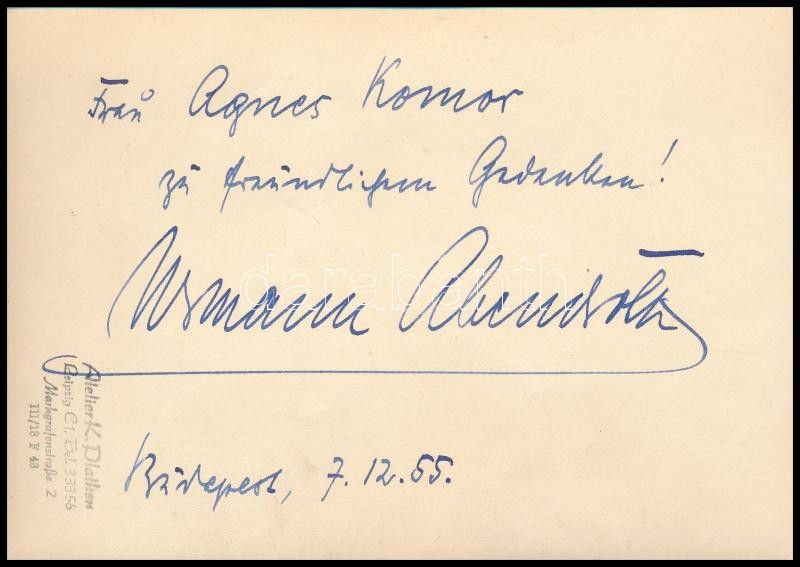 Frau Agnes Komor
zu freundlichem Gedenken!
Hermann Abendroth
Budapest, 7.12.55.
Atelier K. Plathen
Leipzig C 1, Tel. 33356
Markgrafenstraße 2
III/18 F 48
darabanth